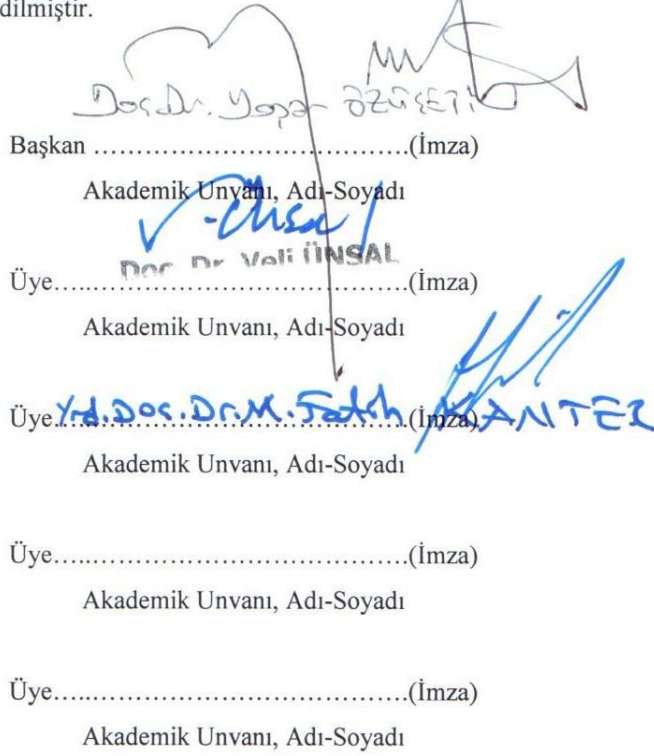 dilmiştir.
Doç.Dr. Yaşar ÖZÜÇETİN
Başkan ……………………………(İmza)
Akademik Unvanı, Adı-Soyadı
Doç. Dr. Veli ÜNSAL
Üye…..……………………………(İmza)
Akademik Unvanı, Adı-Soyadı
Üye Yrd.Doç.Dr.M.Fatih (İmza) KANTER
Akademik Unvanı, Adı-Soyadı
Üye…..……………………………(İmza)
Akademik Unvanı, Adı-Soyadı
Üye…..……………………………(İmza)
Akademik Unvanı, Adı-Soyadı